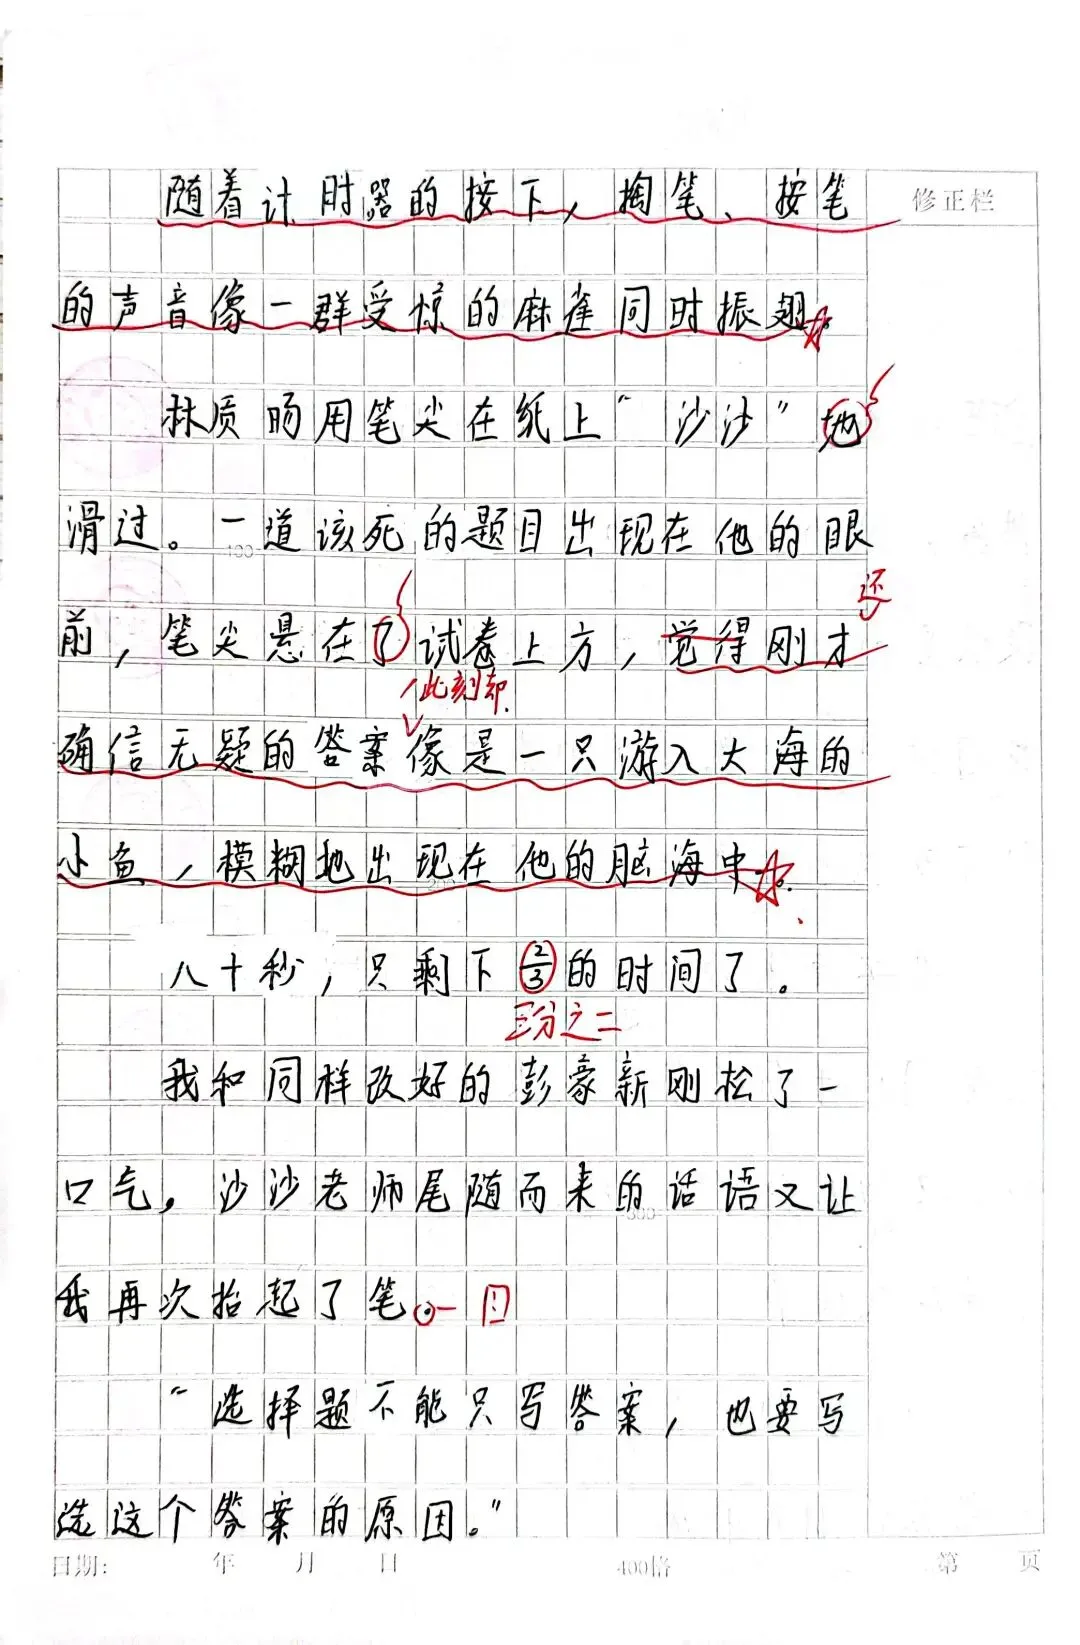 随着计时器的按下，掏笔、按笔
修正栏
的声音像一群受惊的麻雀同时振翅。
林质旸用笔尖在纸上“沙沙”地
滑过。一道该死的题目出现在他的眼
还
前，笔尖悬在了试卷上方，觉得刚才
此刻却
确信无疑的答案像是一只游入大海的
小鱼，模糊地出现在他的脑海中。
八十秒，只剩下2/3的时间了。
三分之二
我和同样改好的彭豪新刚松了一
口气，沙沙老师尾随而来的话语又让
我再次抬起了笔。
“选择题不能只写答案，也要写
选这个答案的原因。”
日期： 年 月 日 400倍 第 页